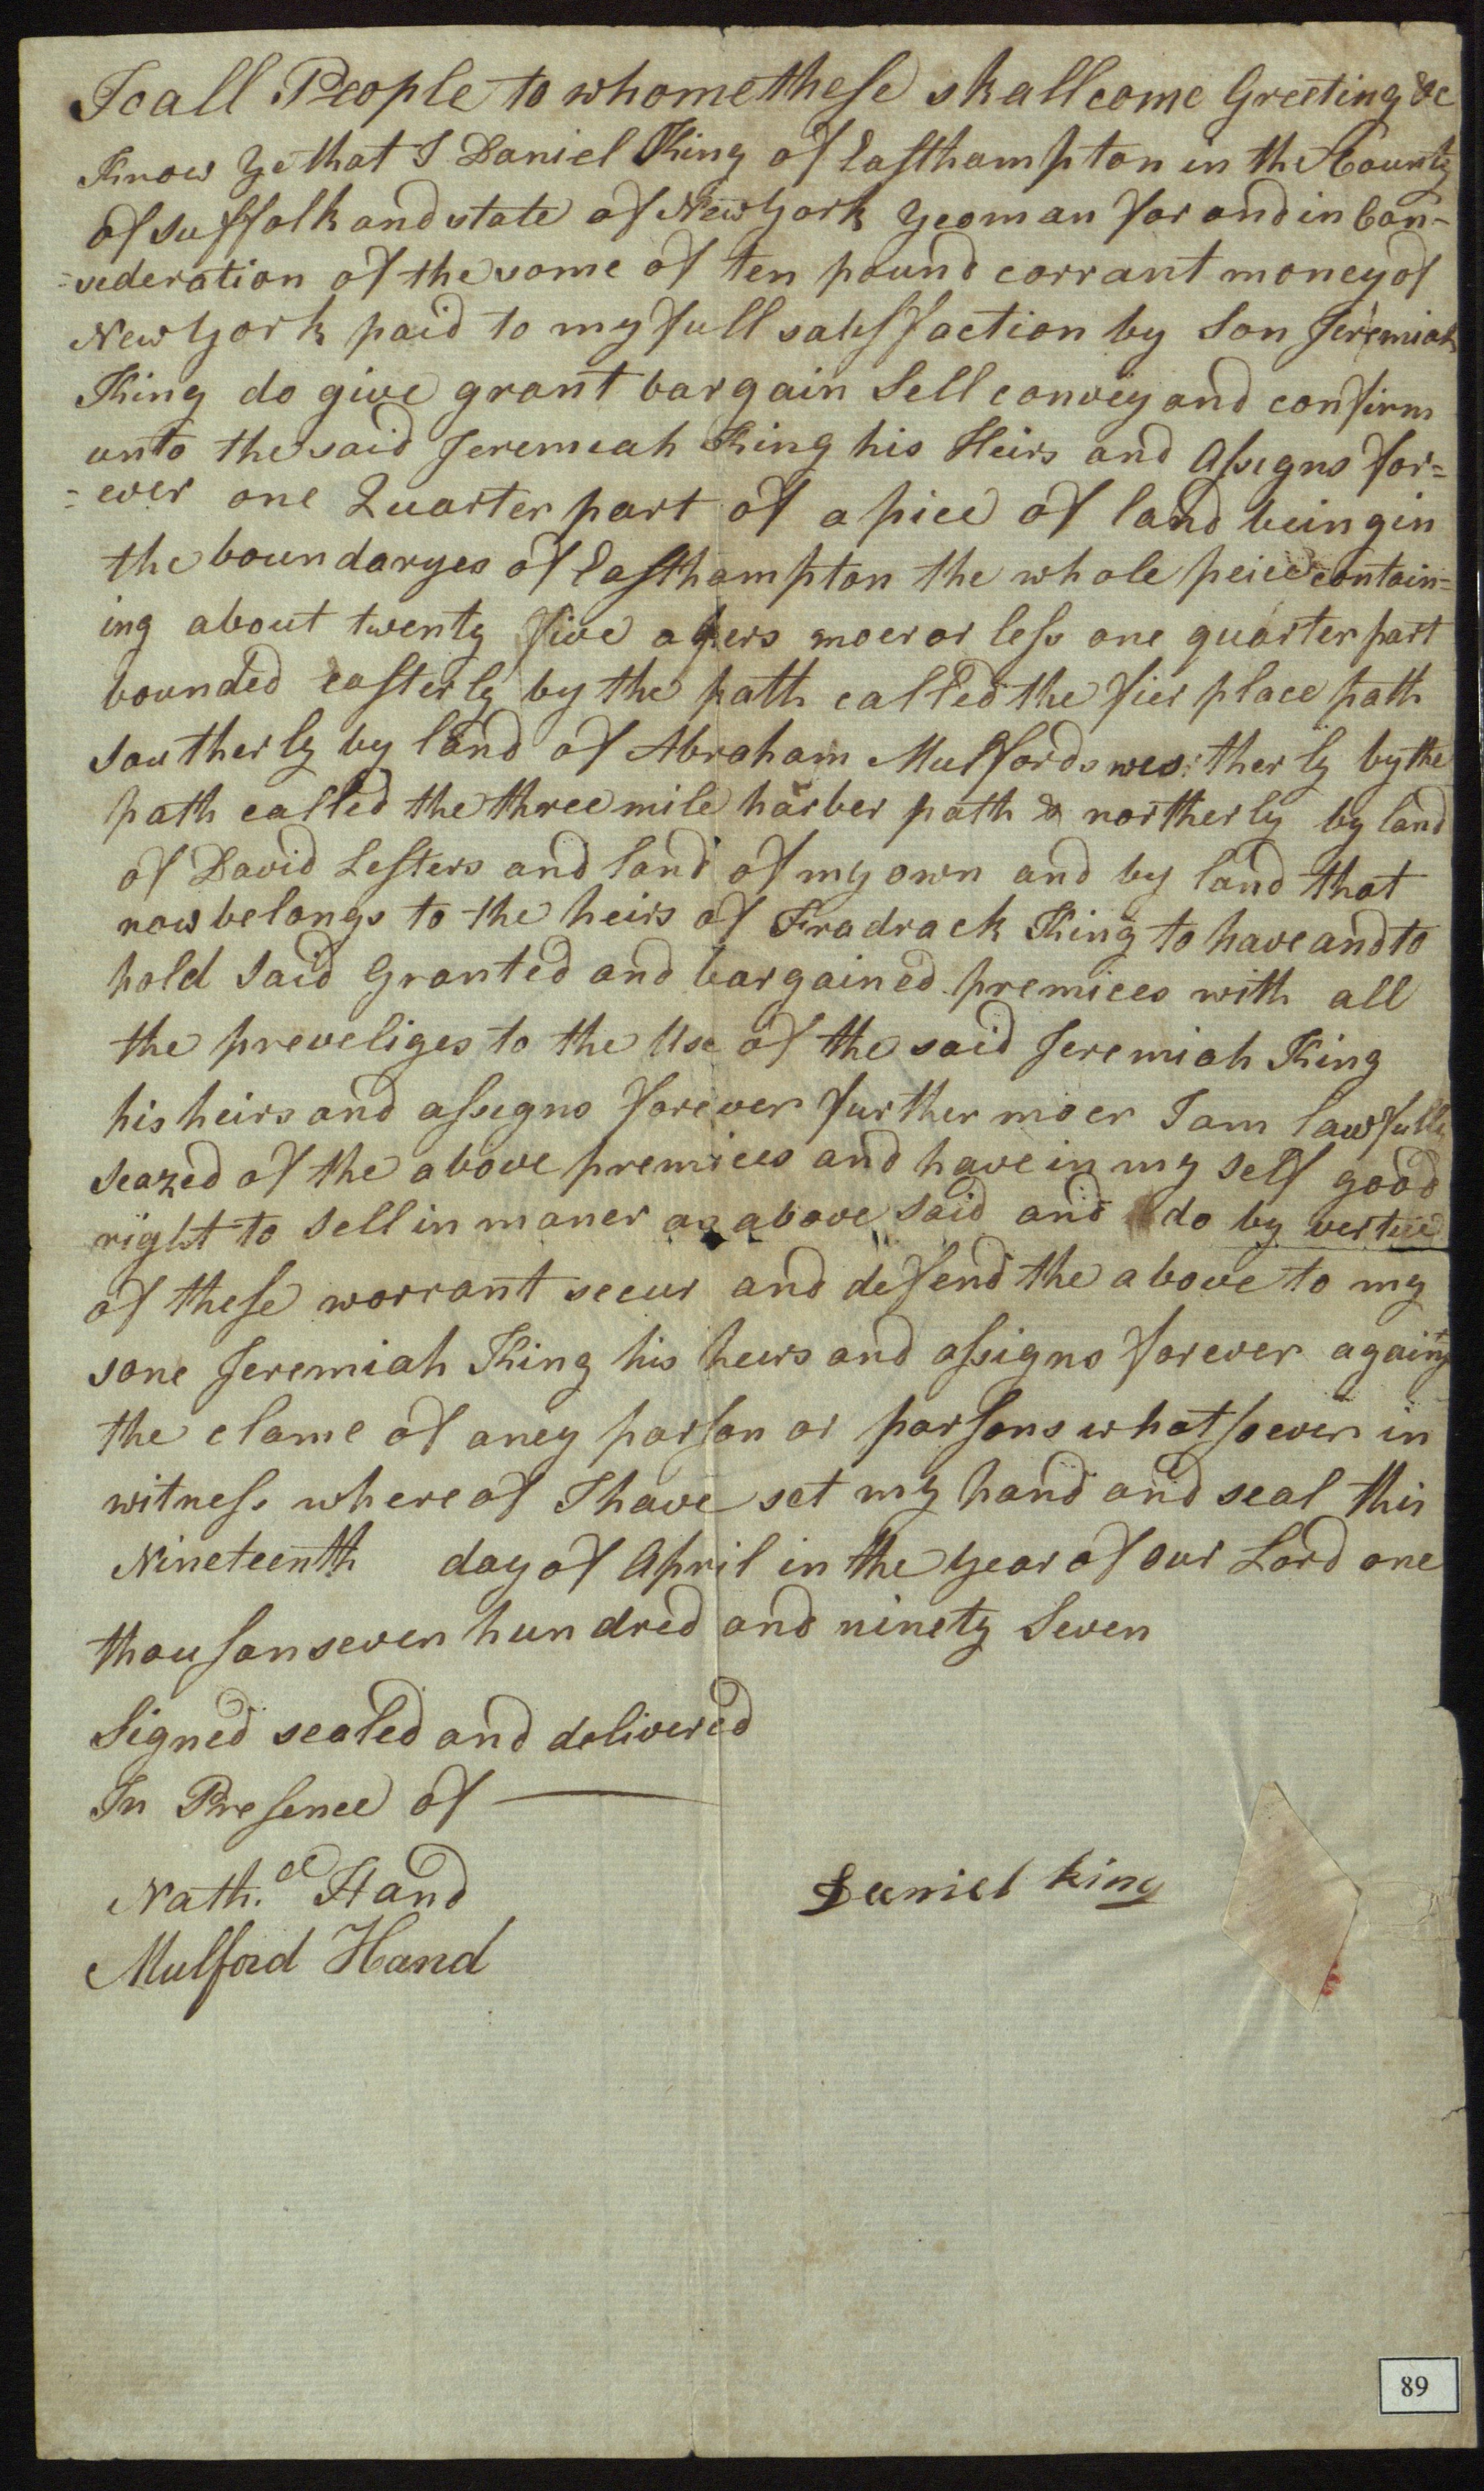 To all People to whome these shall come Greeting &c
Know Ye that I Daniel King of Easthampton in the County
of Suffolk and state of New York Yeoman for and in Con-
=sederation of the some of ten pound corrant money of
New York paid to my full satisffaction by Son Jeremiah
King do give grant bargain Sell convey and confirm
unto the said Jeremeah King his Heirs and Assegns for=
=ever one Quarter part of a piee of land being in
the boundaryes of Easthampton the whole peice contain=
ing about twenty five akers moer or less one quarter part
bounded easterly by the path called the fier place path
Southerly by land of Abraham Mulfords westherly by the
path called the three mile harber path & northerly by land
of David Lesters and land of my own and by land that
now belongs to the heirs of Fradrack King to have and to
hold Said Granted and bargained premices with all
the preveliges to the Use of the said Jeremiah King
his heirs and assegns forever further moer I am lawfully
Seazed of the above premices and have in my Self good
right to Sell in maner as above Said and do by vertue
of these warrant secur and defend the above to my
sone Jeremiah King his heirs and assigns forever against
the clame of aney parson or parsons whatsoever in
witness where of I have set my hand and seal this
Nineteenth day of April in the Year of our Lord one
thousan seven hundred and ninety Seven
Signed sealed and delivered
In Presence of
Nath.el Hand
Daniel king
Mulford Hand
89